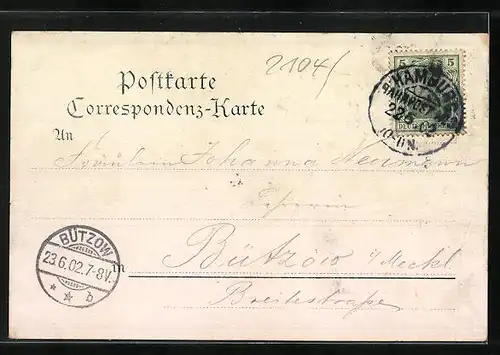 2104/
Postkarte
Correspondenz-Karte
5 5
HAMBURG
BAHNPOST
22.6.02
10-11N.
An
Fräulein Johanna Neumann
Lehrerin
in Bützow i/Meckl.
Breitestraße
BÜTZOW
23.6.02.7-8V.
* * b